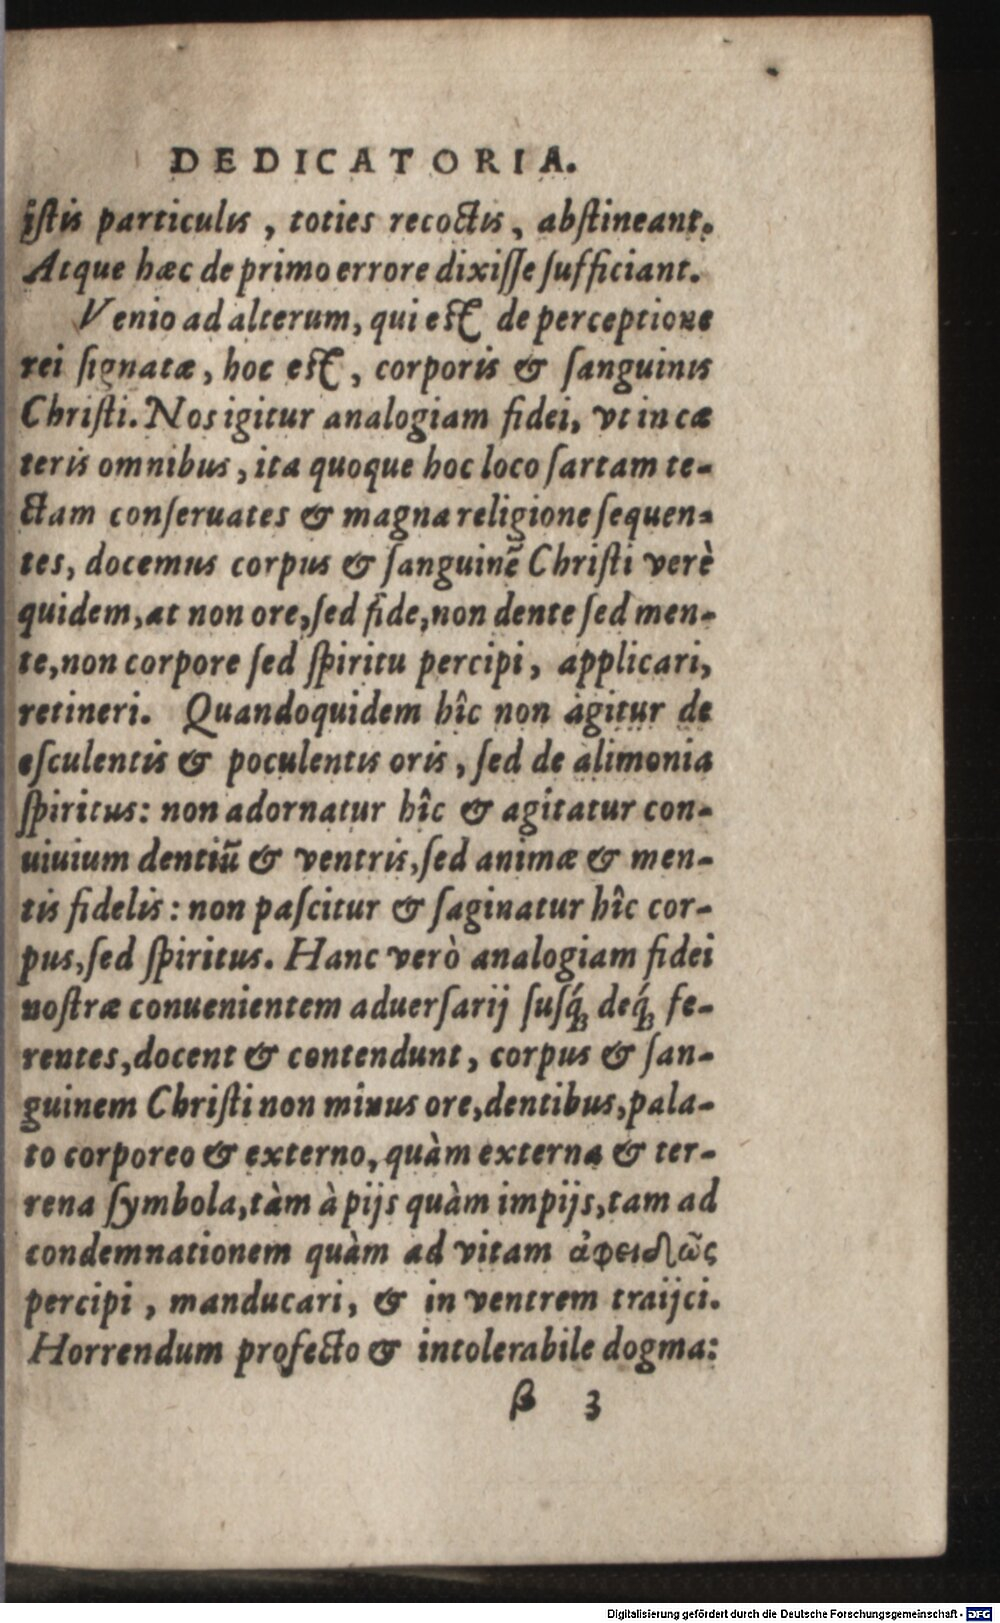 DEDICATORIA.
istis particulis, toties recoctis, abstineant.
Atque hæc de primo errore dixisse sufficiant.
Venio ad alterum, qui est de perceptione
rei signatæ, hoc est, corporis & sanguinis
Christi. Nos igitur analogiam fidei, vt in cæ
teris omnibus, ita quoque hoc loco sartam te-
ctam conseruates & magna religione sequen-
tes, docemus corpus & sanguinẽ Christi verè
quidem, at non ore, sed fide, non dente sed men-
te, non corpore sed spiritu percipi, applicari,
retineri. Quandoquidem hîc non agitur de
esculentis & poculentis oris, sed de alimonia
spiritus: non adornatur hîc & agitatur con-
uiuium dentiũ & ventris, sed animæ & men-
tis fidelis: non pascitur & saginatur hîc cor-
pus, sed spiritus. Hanc verò analogiam fidei
nostræ conuenientem aduersarij susq́; deq́; fe-
rentes, docent & contendunt, corpus & san-
guinem Christi non minus ore, dentibus, pala-
to corporeo & externo, quàm externa & ter-
rena symbola, tàm à pijs quàm impijs, tam ad
condemnationem quàm ad vitam ἀφειδῶς
percipi, manducari, & in ventrem traijci.
Horrendum profecto & intolerabile dogma:
β 3
Digitalisierung gefördert durch die Deutsche Forschungsgemeinschaft - DFG